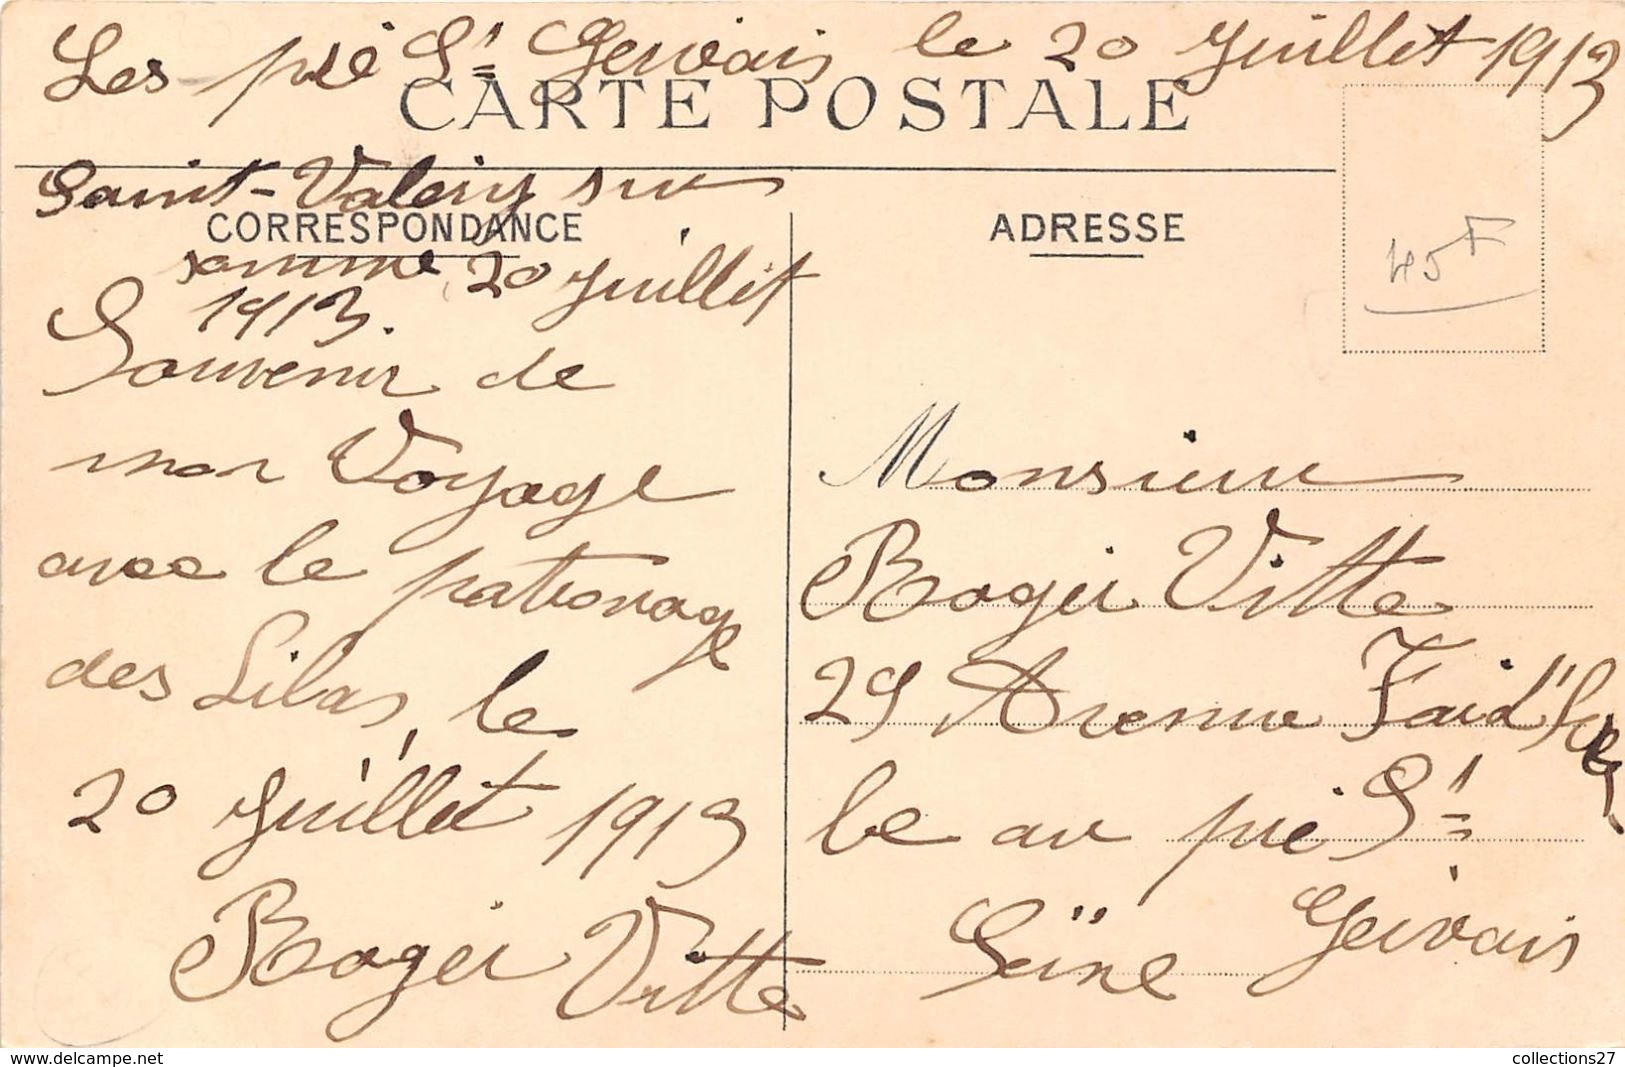 Les pré St Gervais le 20 Juillet 1913
CARTE POSTALE
Saint-Valery sur
CORRESPONDANCE
somme 20 Juillet
1913.
Souvenir de
mon Voyage
avec le patronage
des Lilas, le
20 Juillet 1913
Roger Vitte
ADRESSE
45F
Monsieur
Roger Vitte
29 Avenue Faid'her
be au pré St
Gervais
Seïne
www.delcampe.net
collections27